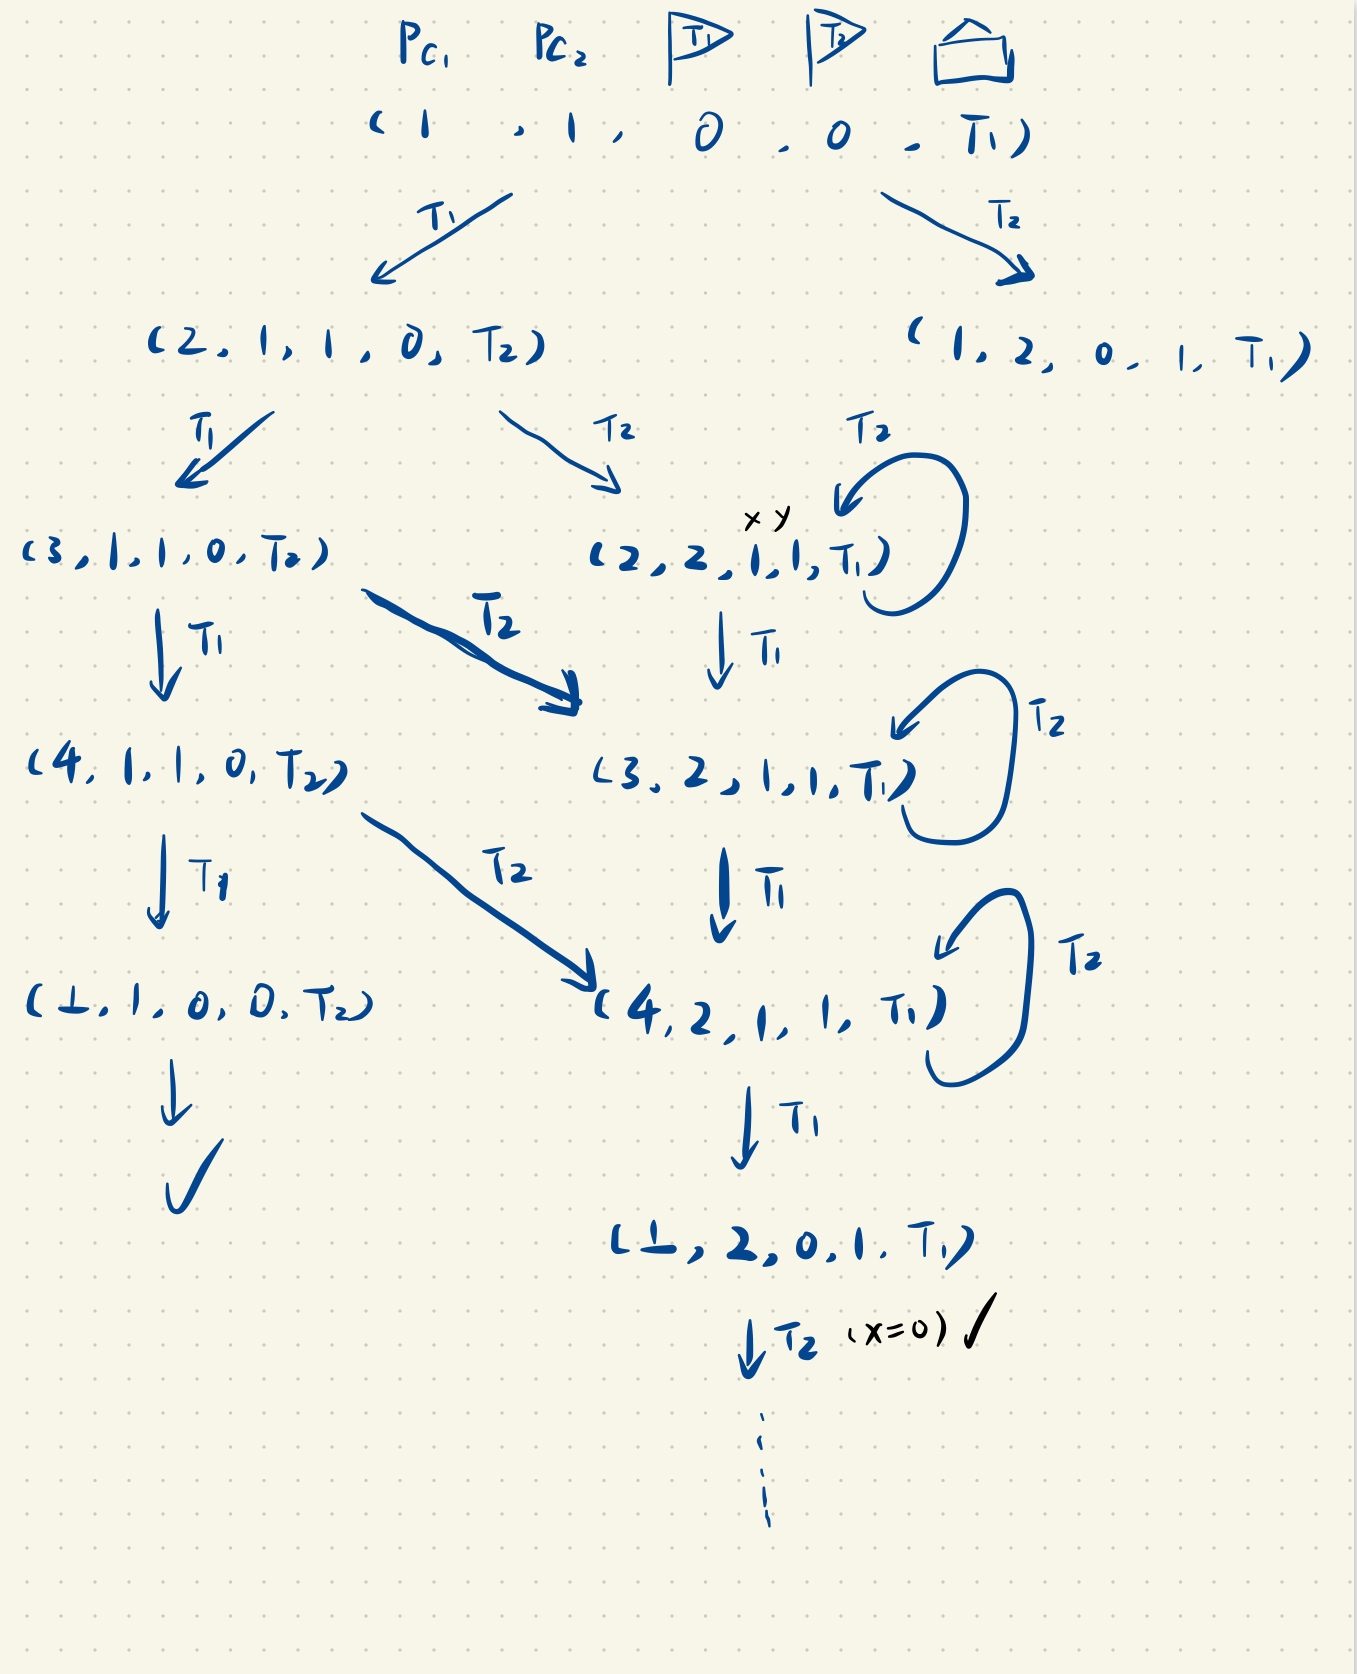 PC₁ PC₂ T₁ T₂
(1, 1, 0, 0, T₁)
T₁ T₂
(2, 1, 1, 0, T₂) (1, 2, 0, 1, T₁)
T₁ T₂ T₂
x y
(3, 1, 1, 0, T₂) (2, 2, 1, 1, T₁)
T₁ T₂ T₁
T₂
(4, 1, 1, 0, T₂) (3, 2, 1, 1, T₁)
T₁ T₂ T₁
T₂
(⊥, 1, 0, 0, T₂) (4, 2, 1, 1, T₁)
T₁
(⊥, 2, 0, 1, T₁)
T₂ (x=0) ✓